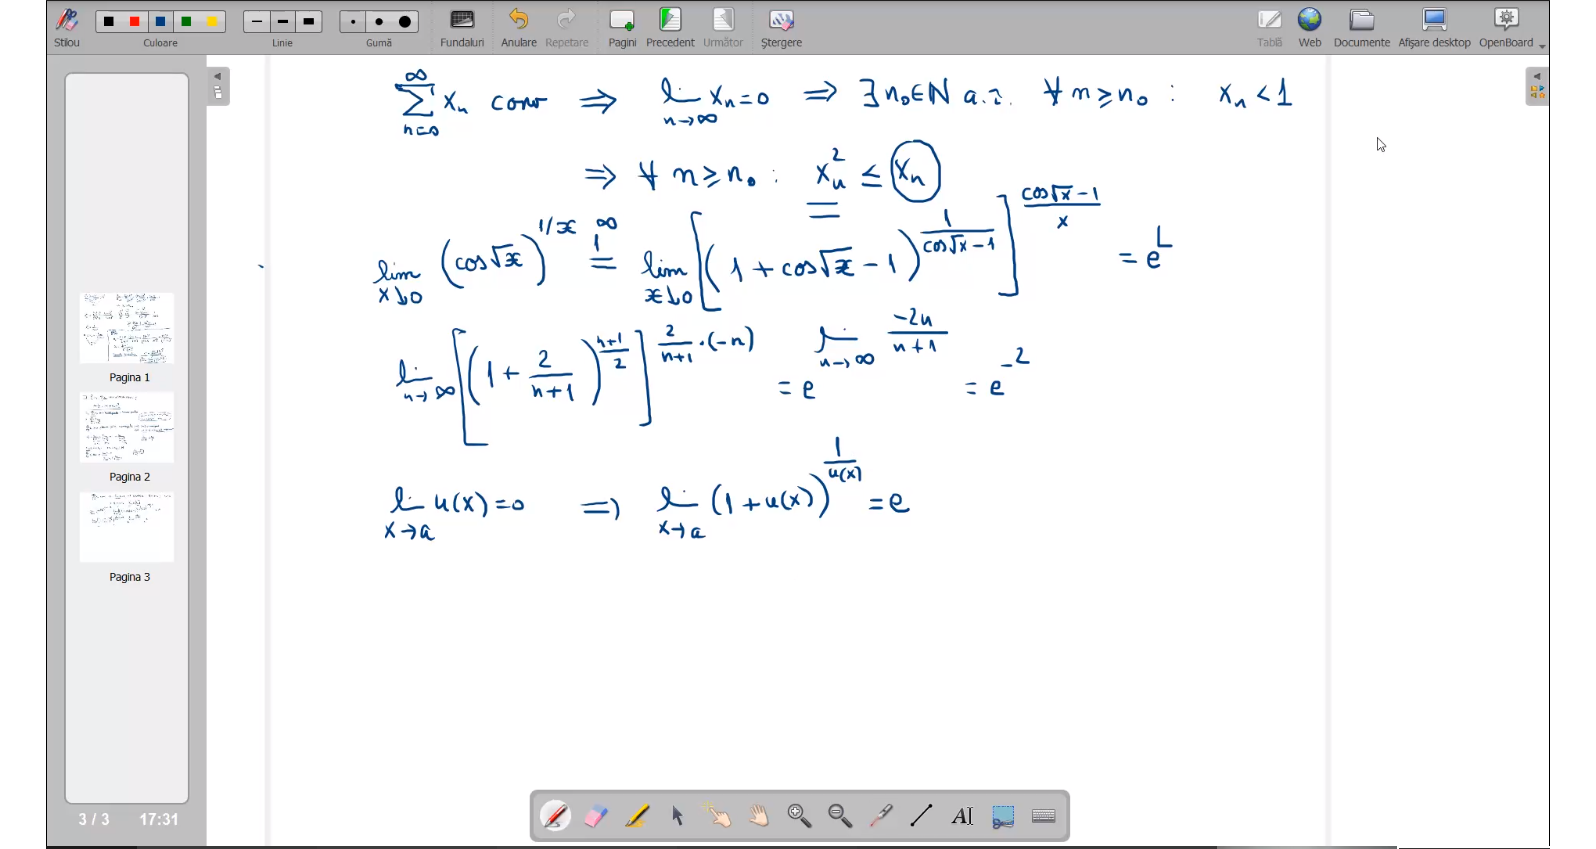 Stilou Culoare Linie Gumă Fundaluri Anulare Repetare Pagini Precedent Următor Ștergere Tablă Web Documente Afișare desktop OpenBoard
∑_{n=0}^{∞} x_n conv ⇒ lim_{n→∞} x_n = 0 ⇒ ∃ n₀ ∈ ℕ a.î. ∀ n ≥ n₀ : x_n < 1
⇒ ∀ n ≥ n₀ : x_n² ≤ x_n
lim_{x↓0} (cos√x)^{1/x} =^{1^∞} lim_{x↓0} [(1 + cos√x − 1)^{1/(cos√x − 1)}]^{(cos√x − 1)/x} = e^L
lim_{n→∞} [(1 + 2/(n+1))^{(n+1)/2}]^{2/(n+1) · (−n)} = e^{lim_{n→∞} −2n/(n+1)} = e^{−2}
lim_{x→a} u(x) = 0 ⇒ lim_{x→a} (1 + u(x))^{1/u(x)} = e
Pagina 1
Pagina 2
Pagina 3
3 / 3 17:31
AI